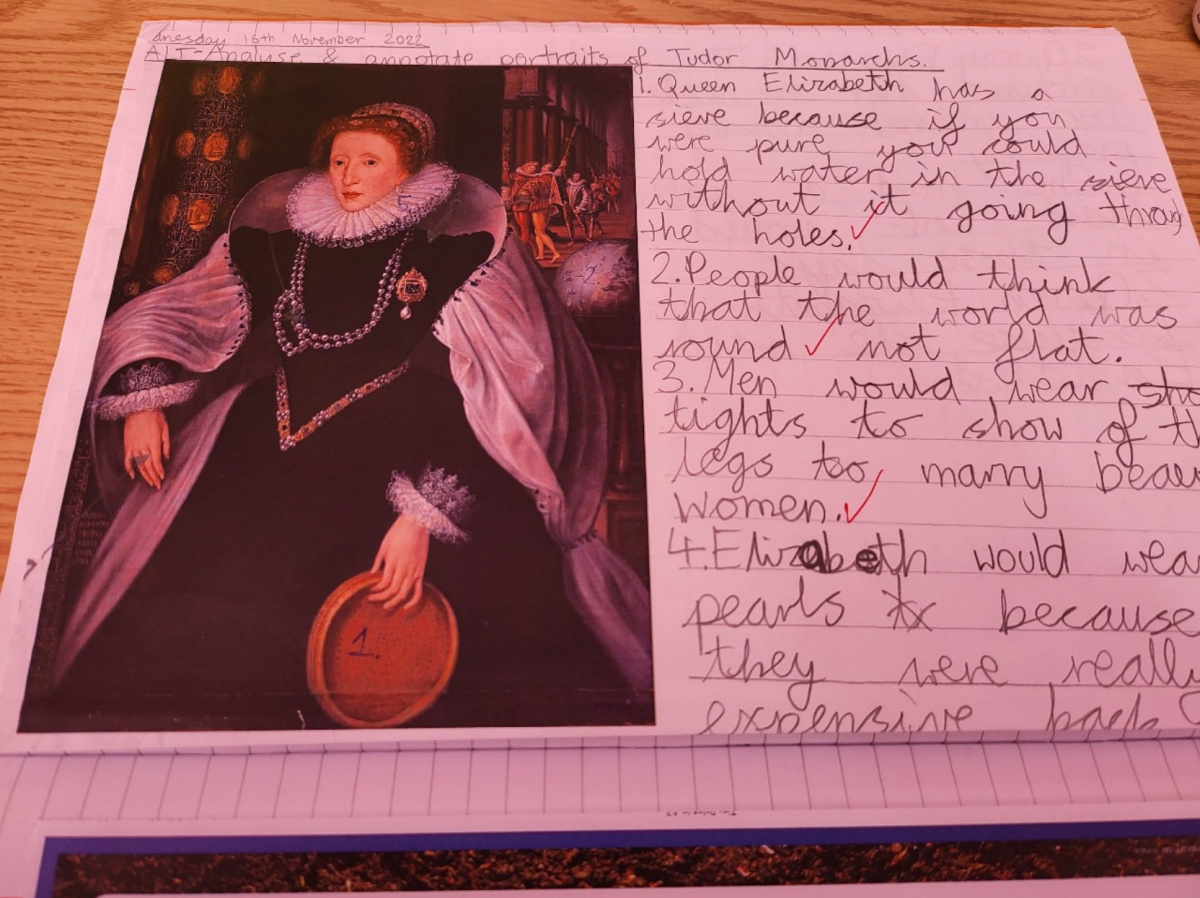 dnesday 16th November 2022
ALT-Analyse & annotate portraits of Tudor Monarchs.
1. Queen Elizabeth has a
sieve because if you
were pure you could
hold water in the sieve
without it going throug
the holes.
2. People would think
that the world was
round not flat.
3. Men would wear sho
tights to show of th
legs too marry beau
women.
4. Elizabeth would wea
pearls because
they were really
expensive back
5
2
1.